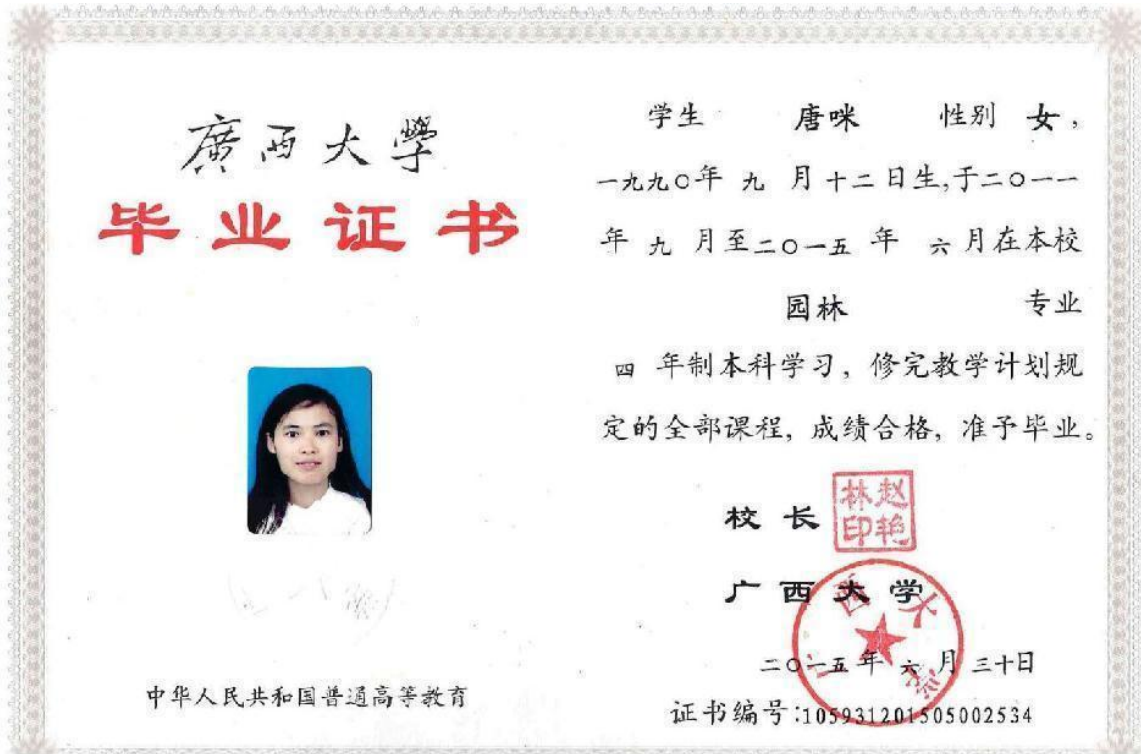 廣西大學
毕业证书
中华人民共和国普通高等教育
学生 唐咪 性别 女,
一九九〇年 九 月十二日生,于二〇一一
年 九 月至二〇一五 年 六月在本校
园林 专业
四 年制本科学习, 修完教学计划规
定的全部课程, 成绩合格, 准予毕业。
校长
赵艳
林印
广西大学
广西大学
二〇一五年 六 月 三十日
证书编号:105931201505002534